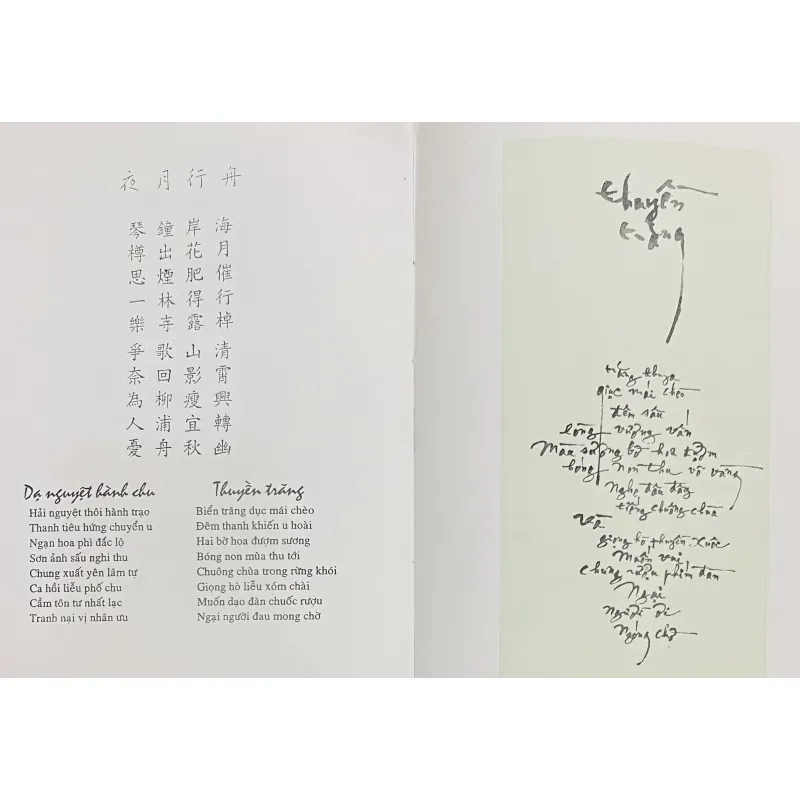 夜月行舟
海月催行棹清霄興轉幽
岸花肥得露山影瘦宜秋
鐘出煙林寺歌回柳浦舟
琴樽思一樂爭奈為人憂
Dạ nguyệt hành chu
Hải nguyệt thôi hành trạo
Thanh tiêu hứng chuyển u
Ngạn hoa phì đắc lộ
Sơn ảnh sấu nghi thu
Chung xuất yên lâm tự
Ca hồi liễu phố chu
Cầm tôn tư nhất lạc
Tranh nại vị nhân ưu
Thuyền trăng
Biển trăng dục mái chèo
Đêm thanh khiến u hoài
Hai bờ hoa đượm sương
Bóng non mùa thu tới
Chuông chùa trong rừng khói
Giọng hò liễu xóm chài
Muốn dạo đàn chuốc rượu
Ngại người đau mong chờ
thuyền
trăng
trăng khuya
giục mái chèo
đêm sâu
lòng vương vấn
Màu sương bờ hoa đượm
bóng non thu võ vàng
Nghe đâu đây
tiếng chuông chùa
Và
giọng hò thuyền
Muốn vui
chung rượu phím đàn
Ngại
người
ngóng chờ